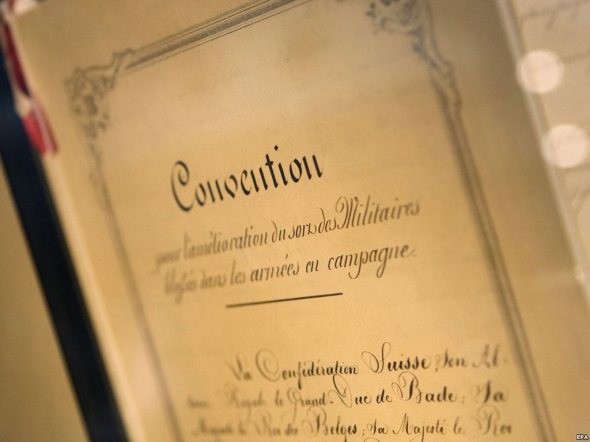 Convention
pour l'amélioration du sort des Militaires
blessés dans les armées en campagne.
La Confédération Suisse; Son Al-
Royale le Grand-Duc de Bade; Sa
Majesté le Roi des Belges; Sa Majesté le Roi
EPA